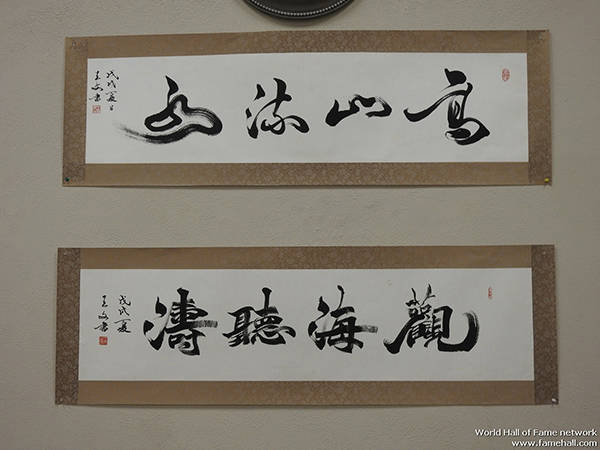 高山流水
戊戌夏日
王文书
觀海聽濤
戊戌夏
王文书
World Hall of Fame network
www.famehall.com